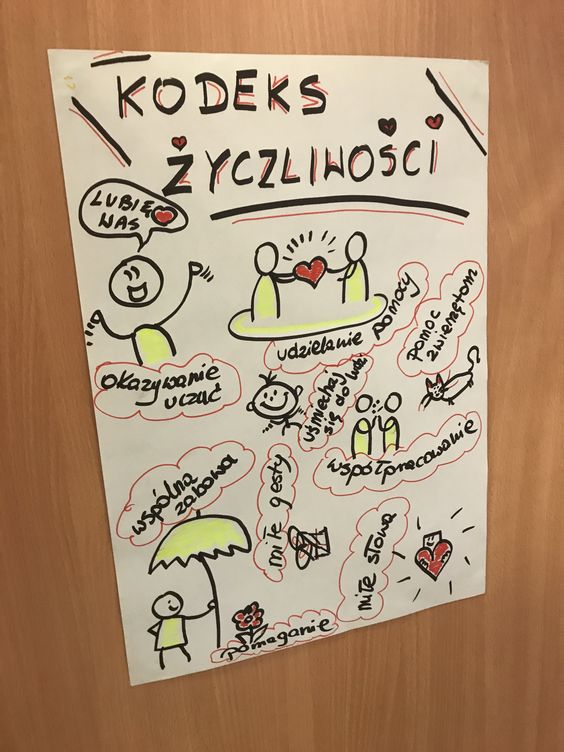 KODEKS
ŻYCZLIWOŚCI
LUBIĘ
WAS
okazywanie
uczuć
udzielanie pomocy
pomoc
zwierzętom
uśmiechaj
się do ludzi
współpracowanie
wspólna
zabawa
miłe gesty
miłe słowa
pomaganie